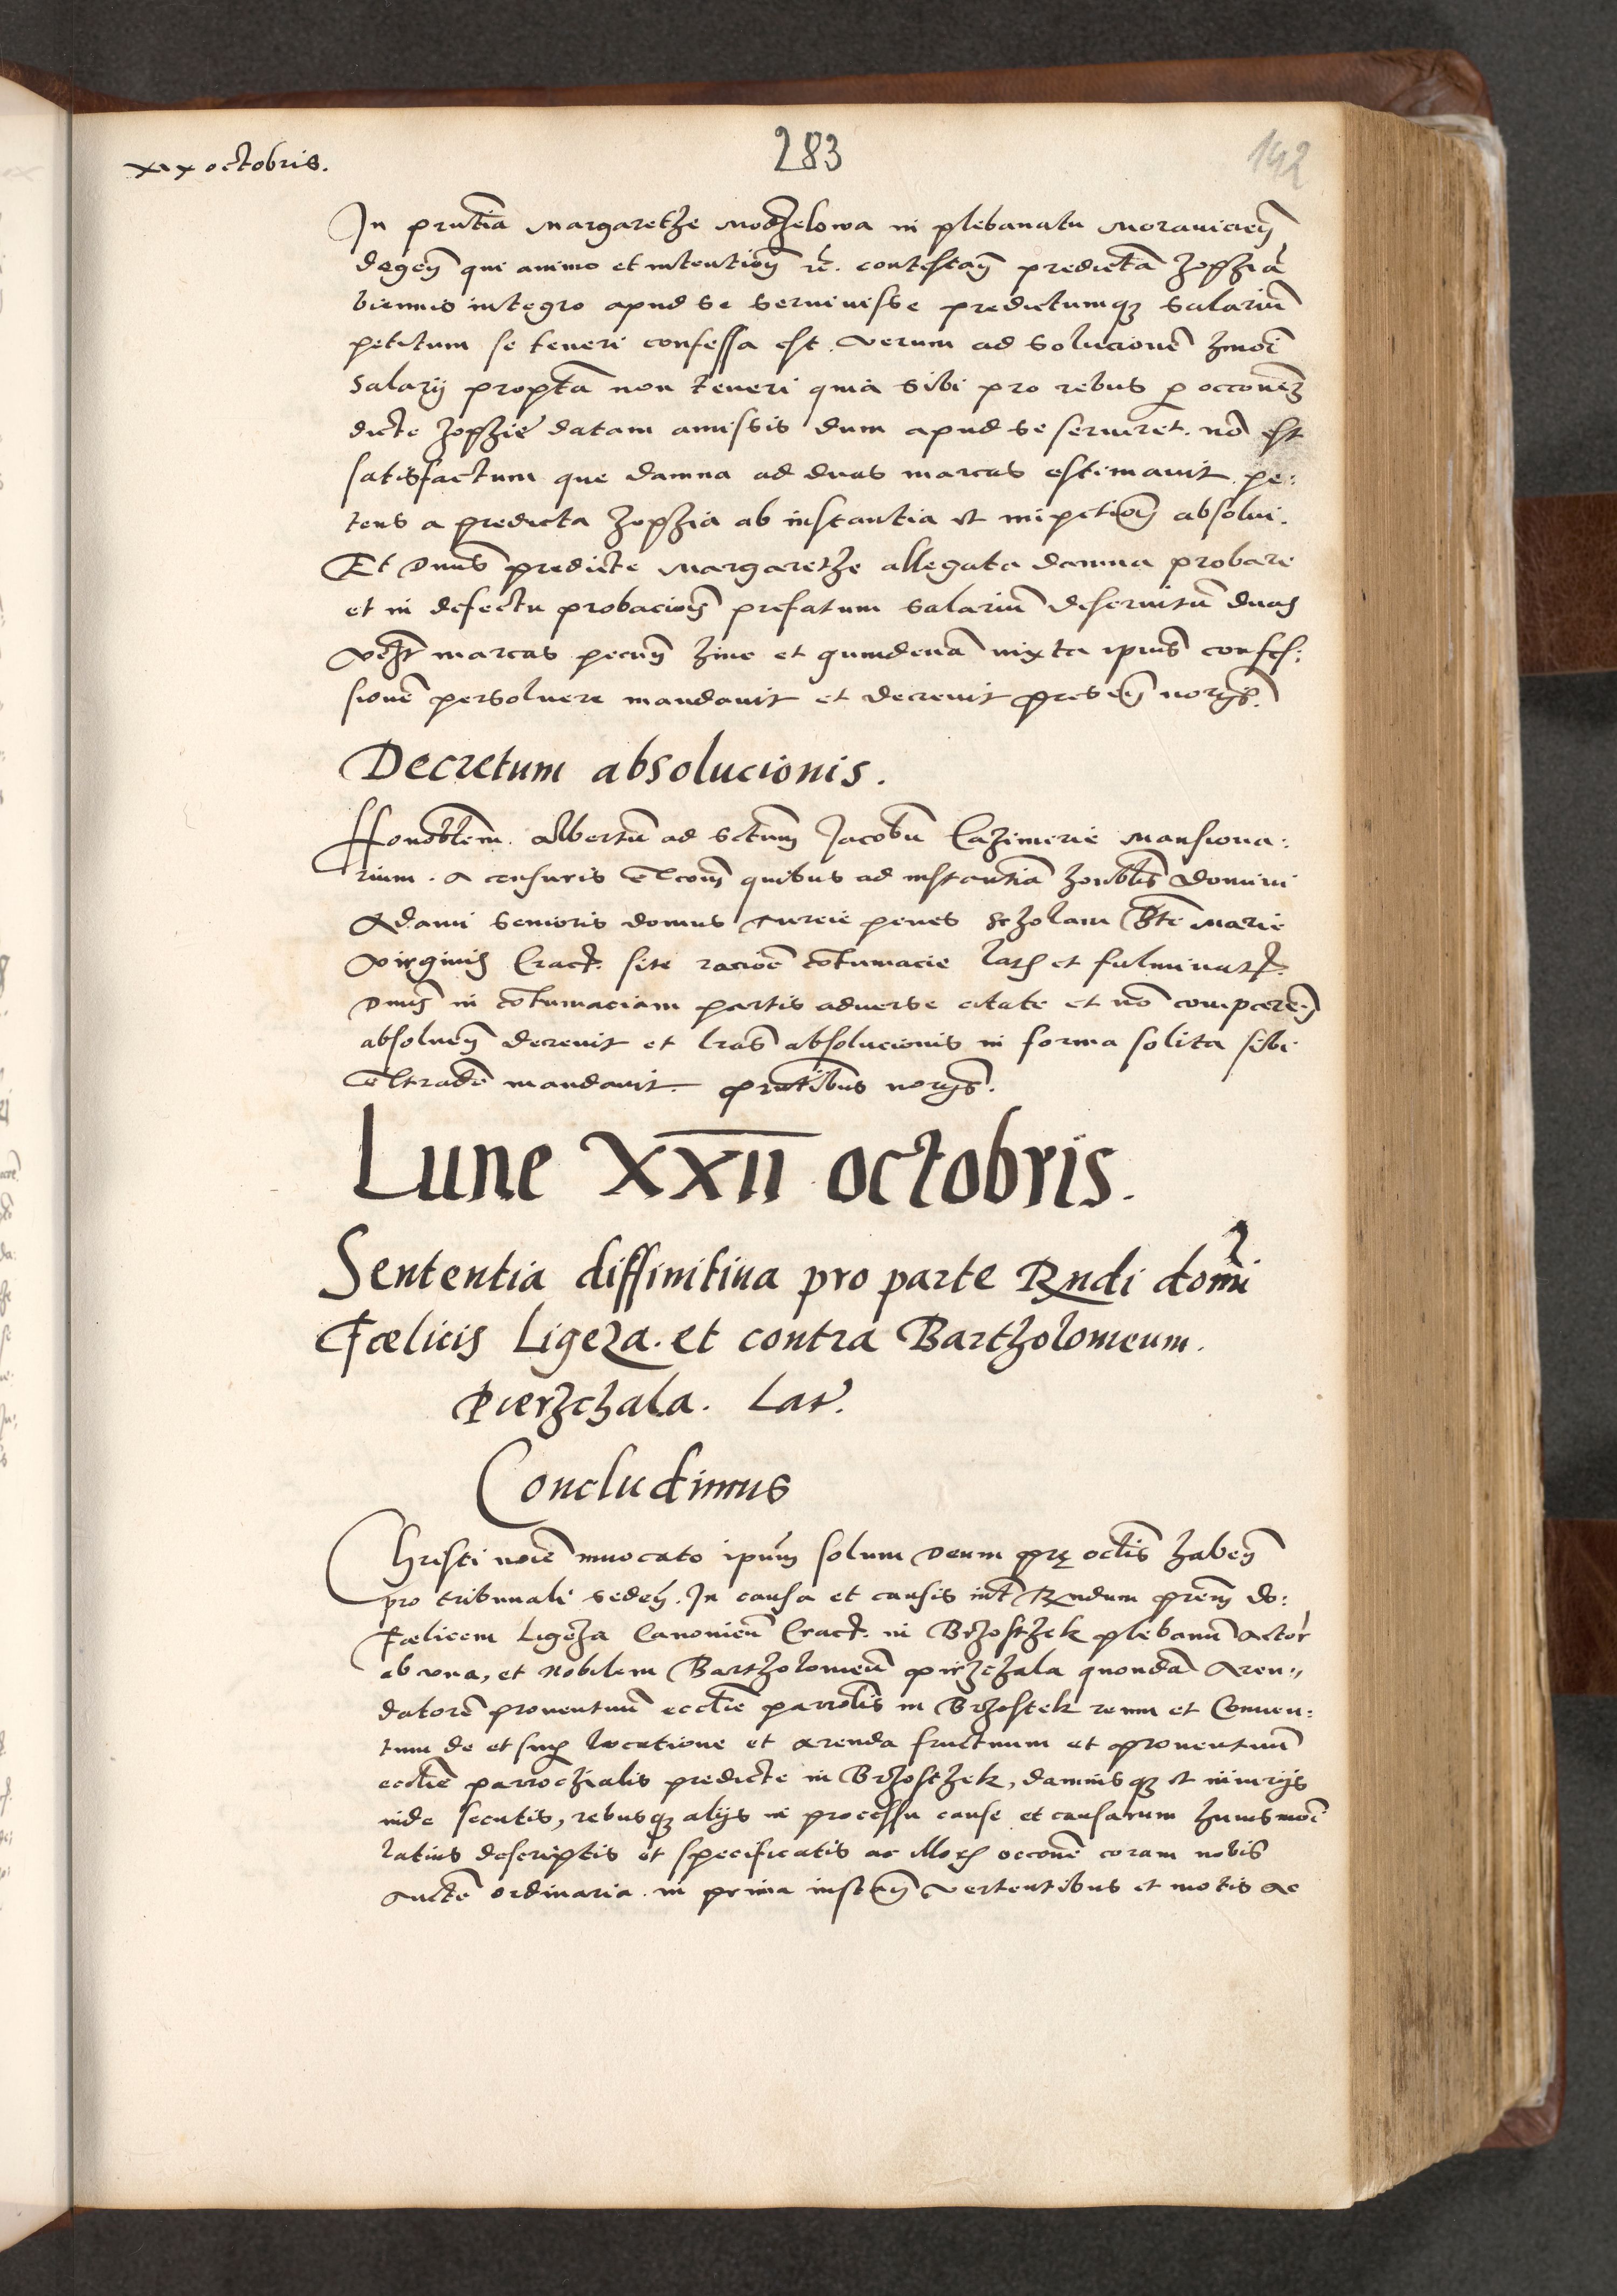 283
192
xix octobris.
In pnntia Margarethe Modzelowa in plebanatu Moraviciensi
degen que animo et intention etc. contestan predictam Zophia
biennio integro apud se servivisse predictumque salarium
petitum se teneri confessa est. Verum ad solucionem hmoi
salarij propta non teneri quia sibi pro rebus per occonem
dicte Zophie datam amissis dum apud se serviret. no est
satisfactum que damna ad duas marcas estimavit pe:
tens a predicta Zophia ab instantia et impetition absolvi.
Et Dnus predicte Margarethe allegata damna probare
et in defectu probacionis prefatum salarium deservitum duas
marcas pecun hmoi et quindena iuxta ipius confes:
sionem persolvere mandavit et decrevit presen
Decretum absolucionis.
Honorblem. Albertum ad sctum Jacobum Cazimirie Mansiona:
rium. a censuris eccles quibus ad instantiam honrblis Domini
Adami senioris domus penes scholam Bte Marie
Virginis Cracov. site racioe cotumacie lat et fulminat.
Dnus in cotumaciam partis adverse citate et no comparen
absolven decrevit et lras absolucionis in forma solita sibi
extradi mandavit. pntibus
Lune XXII octobris.
Sententia diffinitiva pro parte Rndi domi
Fœlicis Ligeza. et contra Bartholomeum.
Pierzchala. Lat.
Concludimus
Christi noie invocato ipum solum Deum pre oclis haben
pro tribunali seden. In causa et causis int Rndum prem do:
Fœlicem Ligeza Canonicum Cracov. in Brzosthek plebanum Actor
ab una, et Nobilem Bartholomeum Pirzchala quondam Aren,,
datorem proventuum ecclie parrochlis in Brzostek reum et Conven:
tum de et sup locatione et arenda fructuum et proventuum
ecclie parrochialis predicte in Brzosthek, damnisque et iniurijs
inde secutis, rebusque alijs in processu cause et causarum huiusmoi
latius descriptis et specificatis ac illor occone coram nobis
aucte ordinaria in prima instan vertentibus et motis ac